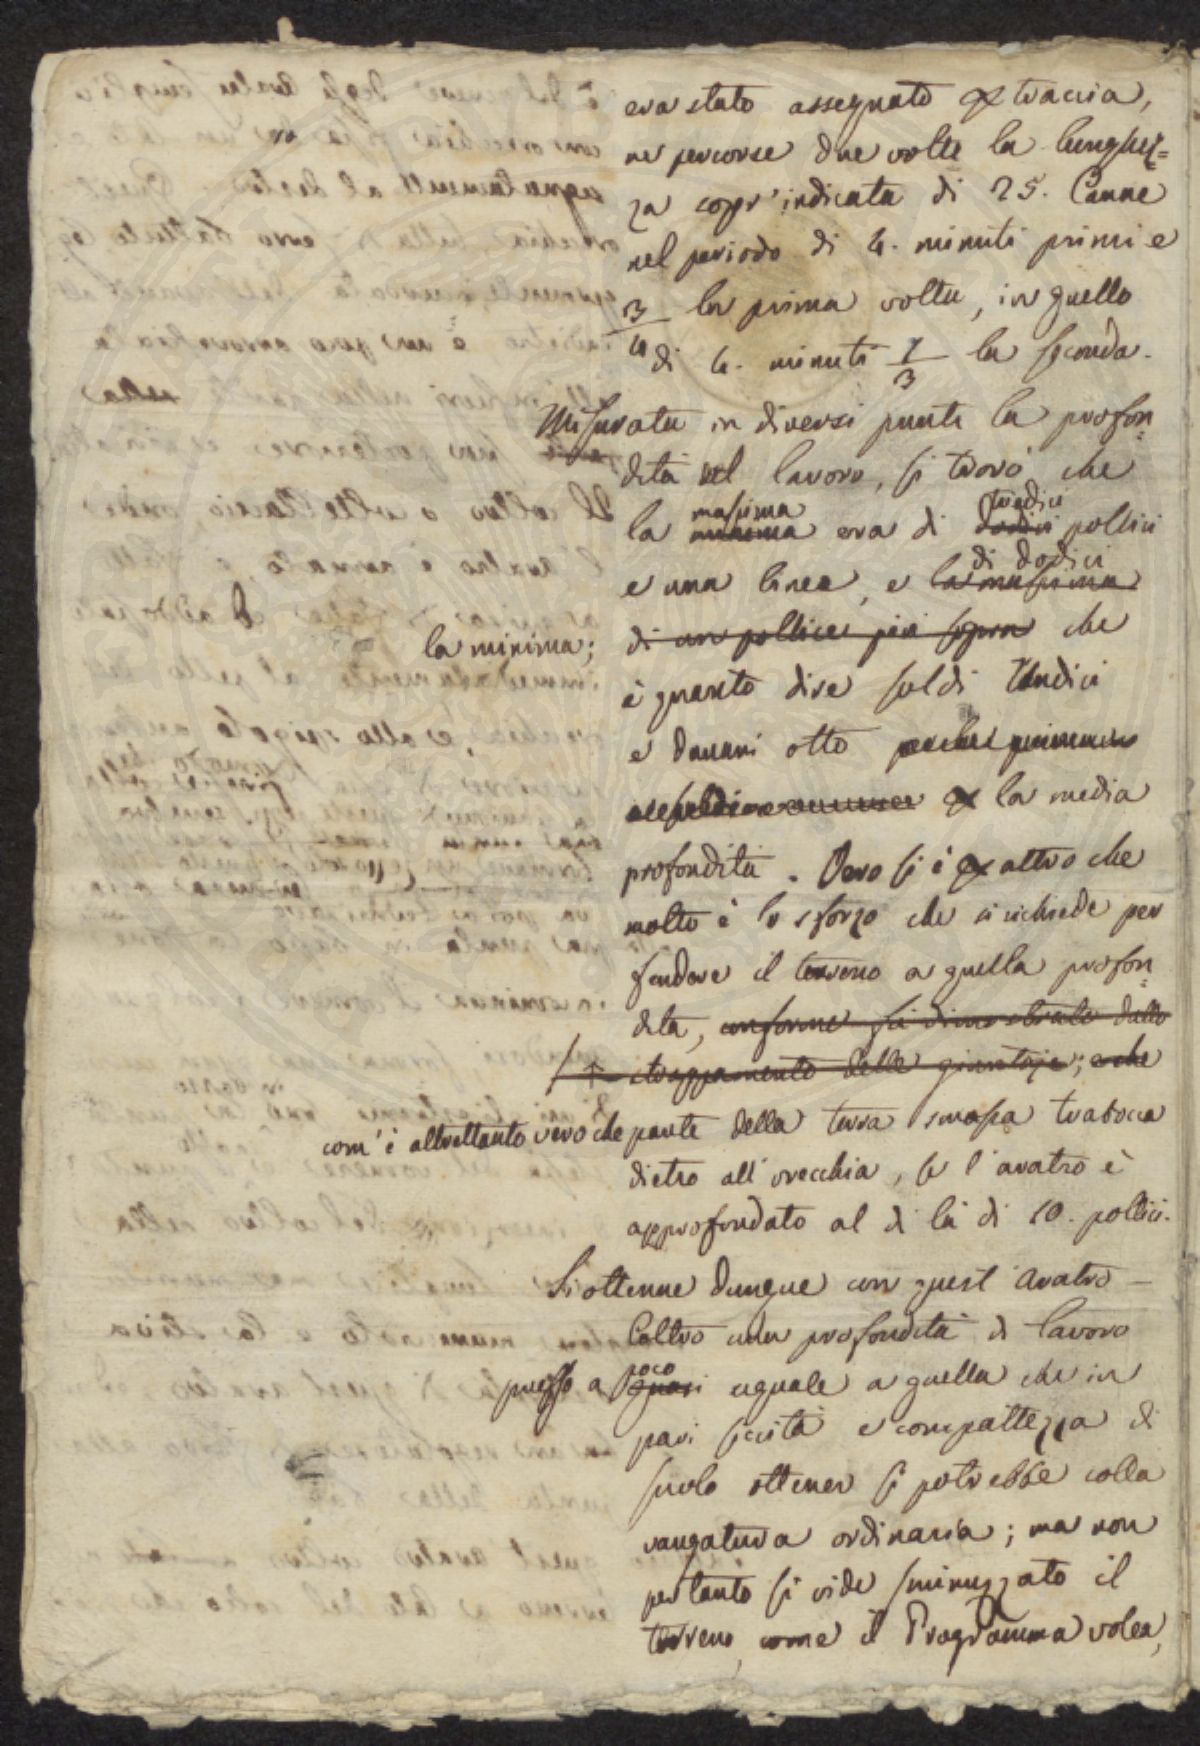 era stato assegnato per traccia,
ne percorse due volte la lunghez=
za sopr'indicata di 25. Canne
nel periodo di 4. minuti primi e
3/4 la prima volta, in quello
di 4. minuti 1/3 la seconda.
Misurata in diversi punti la profon=
dità del lavoro, si trovò, che
massima tredici
la minima era di dodici pollici
di dodici
e una linea, e la massima
la minima; di un pollice più sopra che
è quanto dire soldi Undici
e danari otto
la media
profondità. Vero si è per altro che
molto è lo sforzo che si richiede per
fendere il terreno a quella profon=
dità, conforme fu dimostrato dallo
strappamento delle ; e che
com'è altrettanto vero che parte della terra smossa trabocca
dietro all'orecchia, se l'aratro è
approfondato al di là di 10. pollici.
Si ottenne dunque con quest'Aratro
Coltro una profondità di lavoro
poco
presso a quasi uguale a quella che in
pari siccità e compattezza di
suolo ottener si potrebbe colla
vangatura ordinaria; ma non
pertanto si vide sminuzzato il
terreno, come il Programma volea,